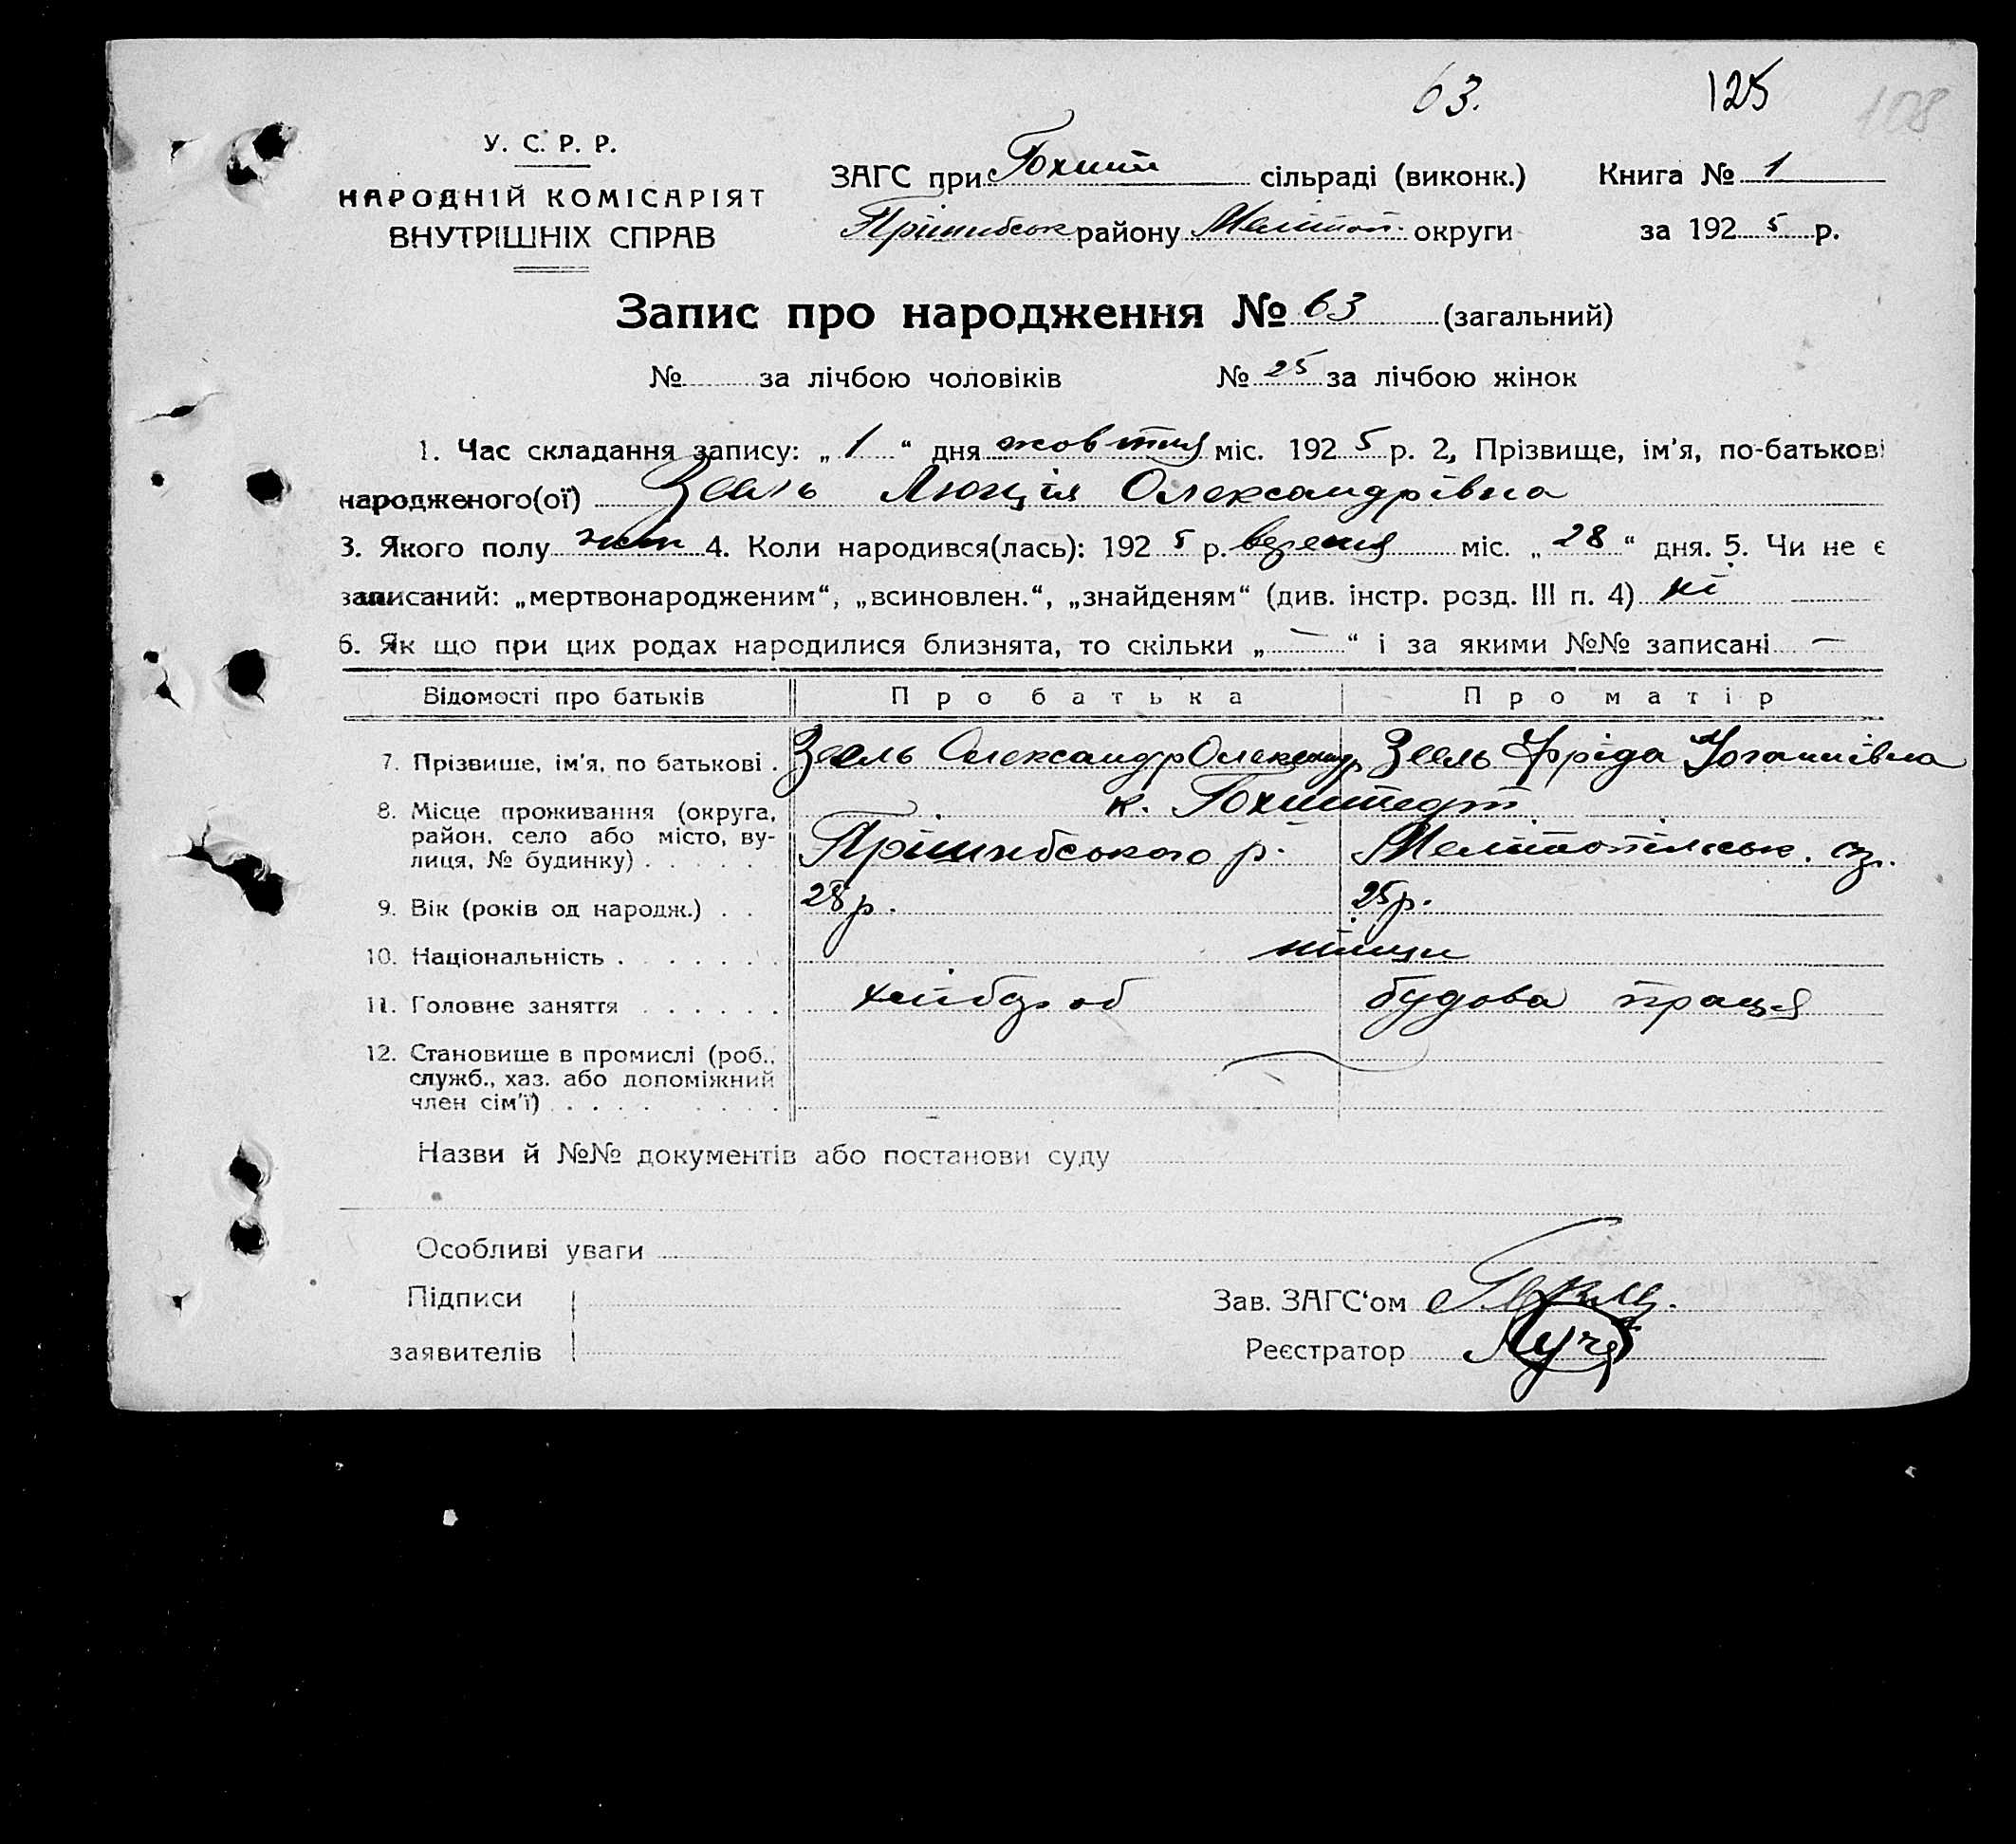 63. 125 108
У. С. Р. Р.
НАРОДНІЙ КОМІСАРІЯТ
ВНУТРІШНІХ СПРАВ
ЗАГС при Гохшт сільраді (виконк.) Книга № 1
Прішибськ району Меліт округи за 1925 р.
Запис про народження № 63 (загальний)
№ за лічбою чоловіків № 25 за лічбою жінок
1. Час складання запису: „ 1 “ дня жовтня міс. 1925 р. 2, Прізвище, ім'я, по-батькові
народженого(ої) Зеель Люція Олександрівна
3. Якого полу жін 4. Коли народився(лась): 1925 р. вересня міс. „ 28 “ дня. 5. Чи не є
записаний: „мертвонародженим“, „всиновлен.“, „знайденям“ (див. інстр. розд. III п. 4) ні
6. Як що при цих родах народилися близнята, то скільки „ — “ і за якими №№ записані —
Відомості про батьків Про батька Про матір
7. Прізвище, ім'я, по батькові . Зеель Олександр Олександр Зеель Фріда Йоганнівна
8. Місце проживання (округа, район, село або місто, вулиця, № будинку) . . . . . к. Гохштедт
Прішибського р. Мелітопільськ. ок.
9. Вік (років од народж.) . . 28 р. 25 р.
10. Національність . . . . . . . німци
11. Головне заняття . . . . . . хлібороб будова праця
12. Становище в промислі (роб., служб., хаз. або допоміжний член сім'ї) . . . . . . . . —
Назви й №№ документів або постанови суду
Особливі уваги
Підписи
заявителів
Зав. ЗАГС‘ом
Реєстратор